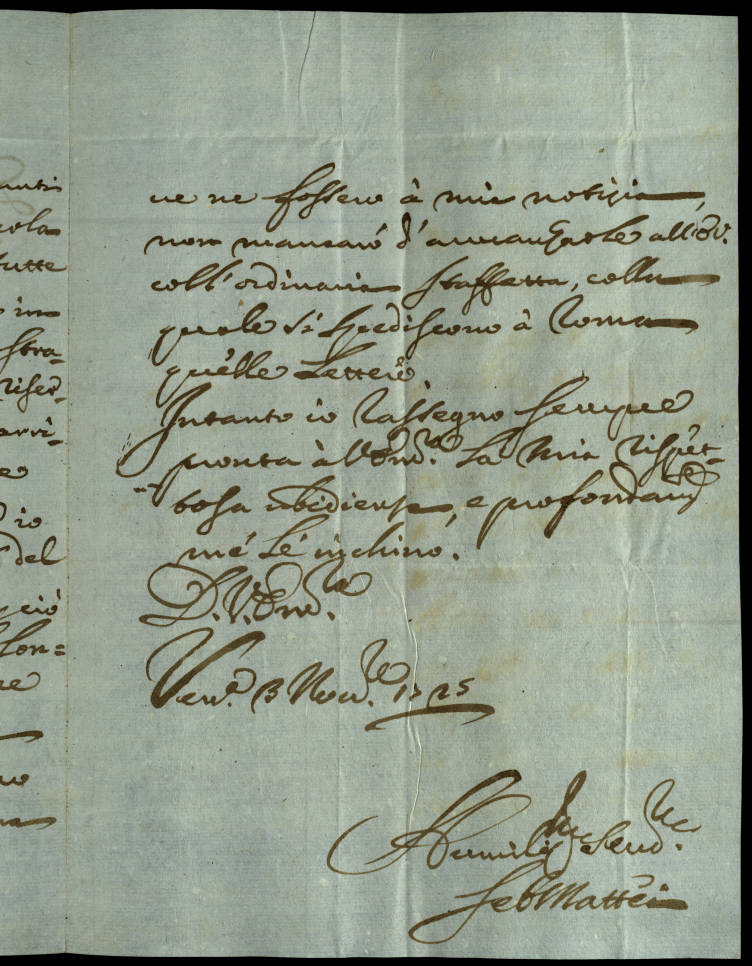 anti
cola
tutte
in
stra-
riser-
arri-
e
io
del
ciò
Lon=
re
ue ne fossero à mia notizia,
non mancarò d'auuanzarle all'
coll' ordinaria staffetta, colla
quale si spediscono à Roma
quelle Lettere.
Intanto io rassegno sempre
pronta à V. Em.za la mia rispet-
tosa ubidienza, e profondam.te
me Le inchino.
D. V. Em.za
Ven.a 3 Nou.re 1725
Humiliss.e Seru.re
Seb Mattei